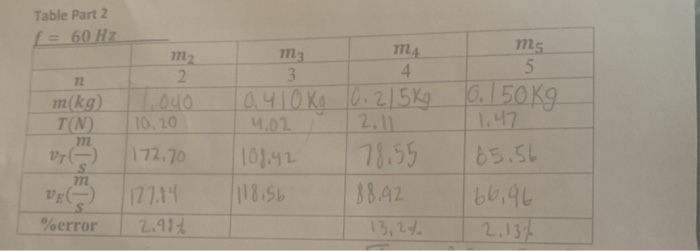 Table Part 2
f = 60 Hz
m₂ m₃ m₄ m₅
n 2 3 4 5
m(kg) 1.040 0.410Kg 0.215Kg 0.150Kg
T(N) 10.20 4.02 2.11 1.47
v_T(m/s) 172.70 108.42 78.55 65.56
v_E(m/s) 177.84 118.56 88.92 66.96
%error 2.98% 13.2% 2.13%